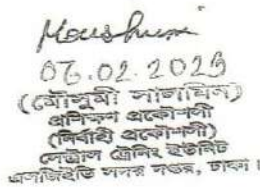 Moushumi
06.02.2023
(মৌসুমী সালামিন)
প্রশিক্ষণ প্রকৌশলী
(নির্বাহী প্রকৌশলী)
সেন্ট্রাল ট্রেনিং ইউনিট
এলজিইডি সদর দপ্তর, ঢাকা।